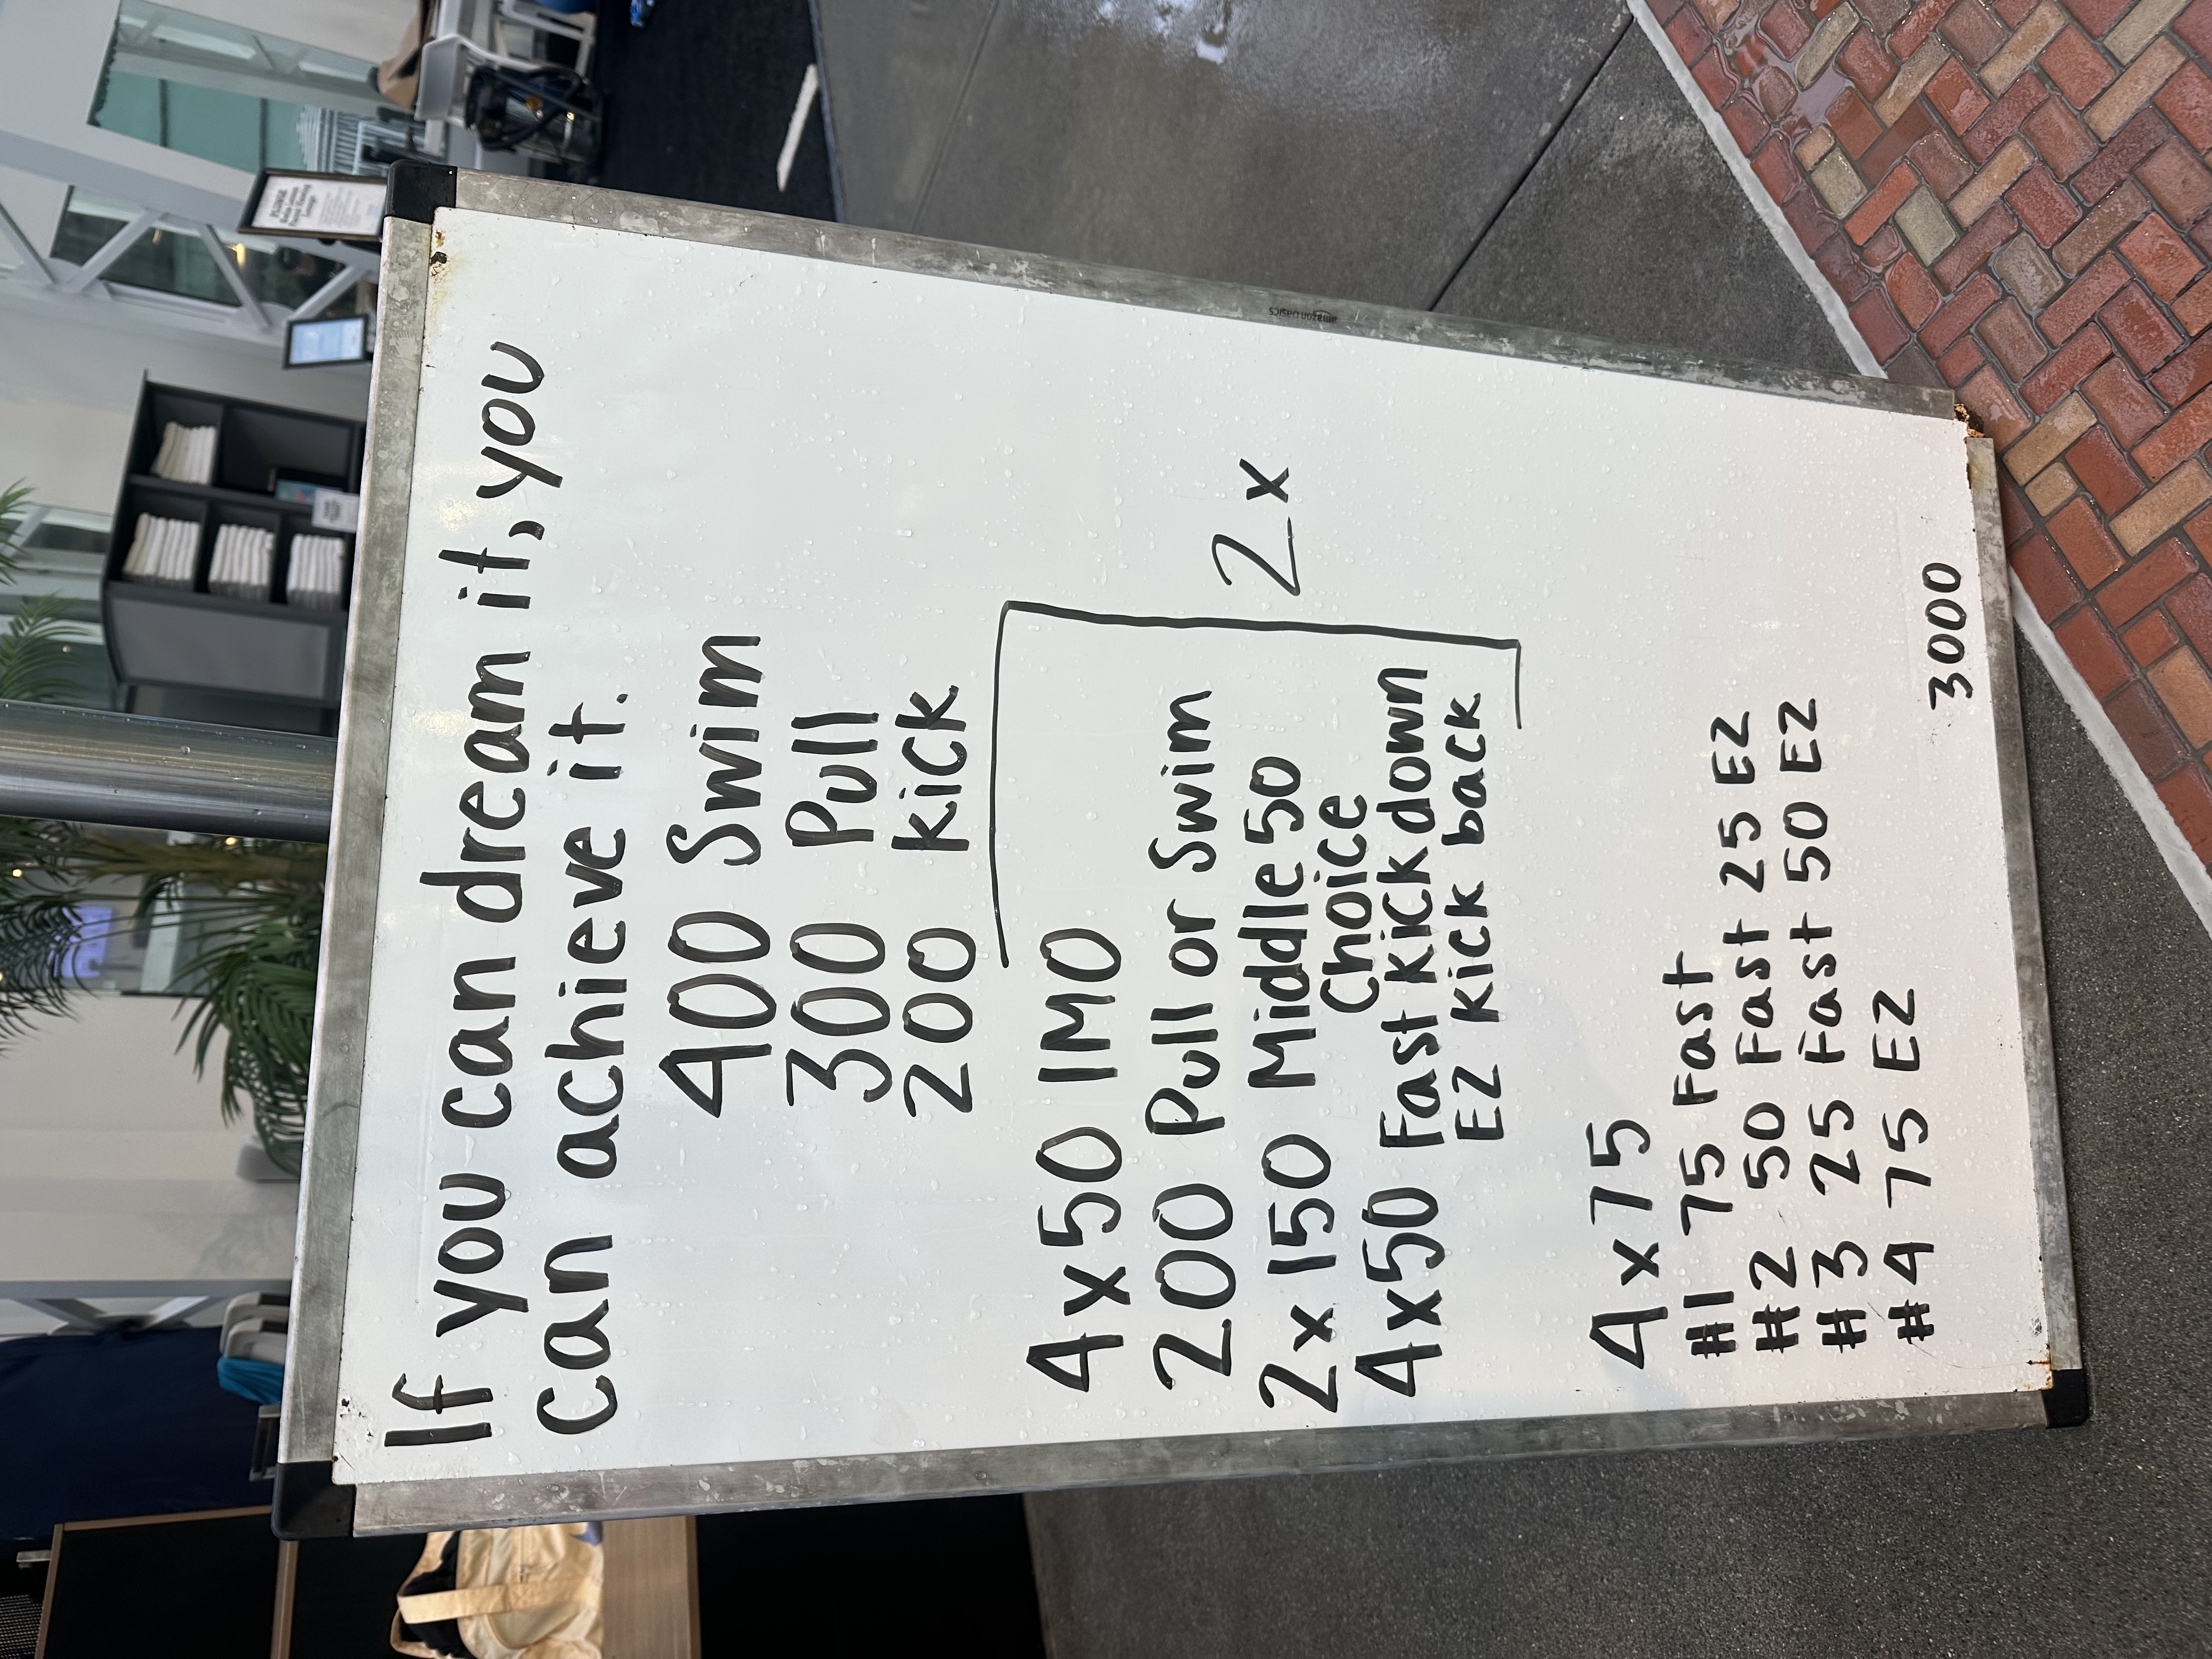 If you can dream it, you
can achieve it.
400 Swim
300 Pull
200 Kick
4x50 IMO
200 Pull or Swim
2x150 Middle 50
Choice
4x50 Fast Kick down
EZ Kick back
2x
4x75
#1 75 Fast
#2 50 Fast 25 EZ
#3 25 Fast 50 EZ
#4 75 EZ
3000
amazon basics
PLEASE